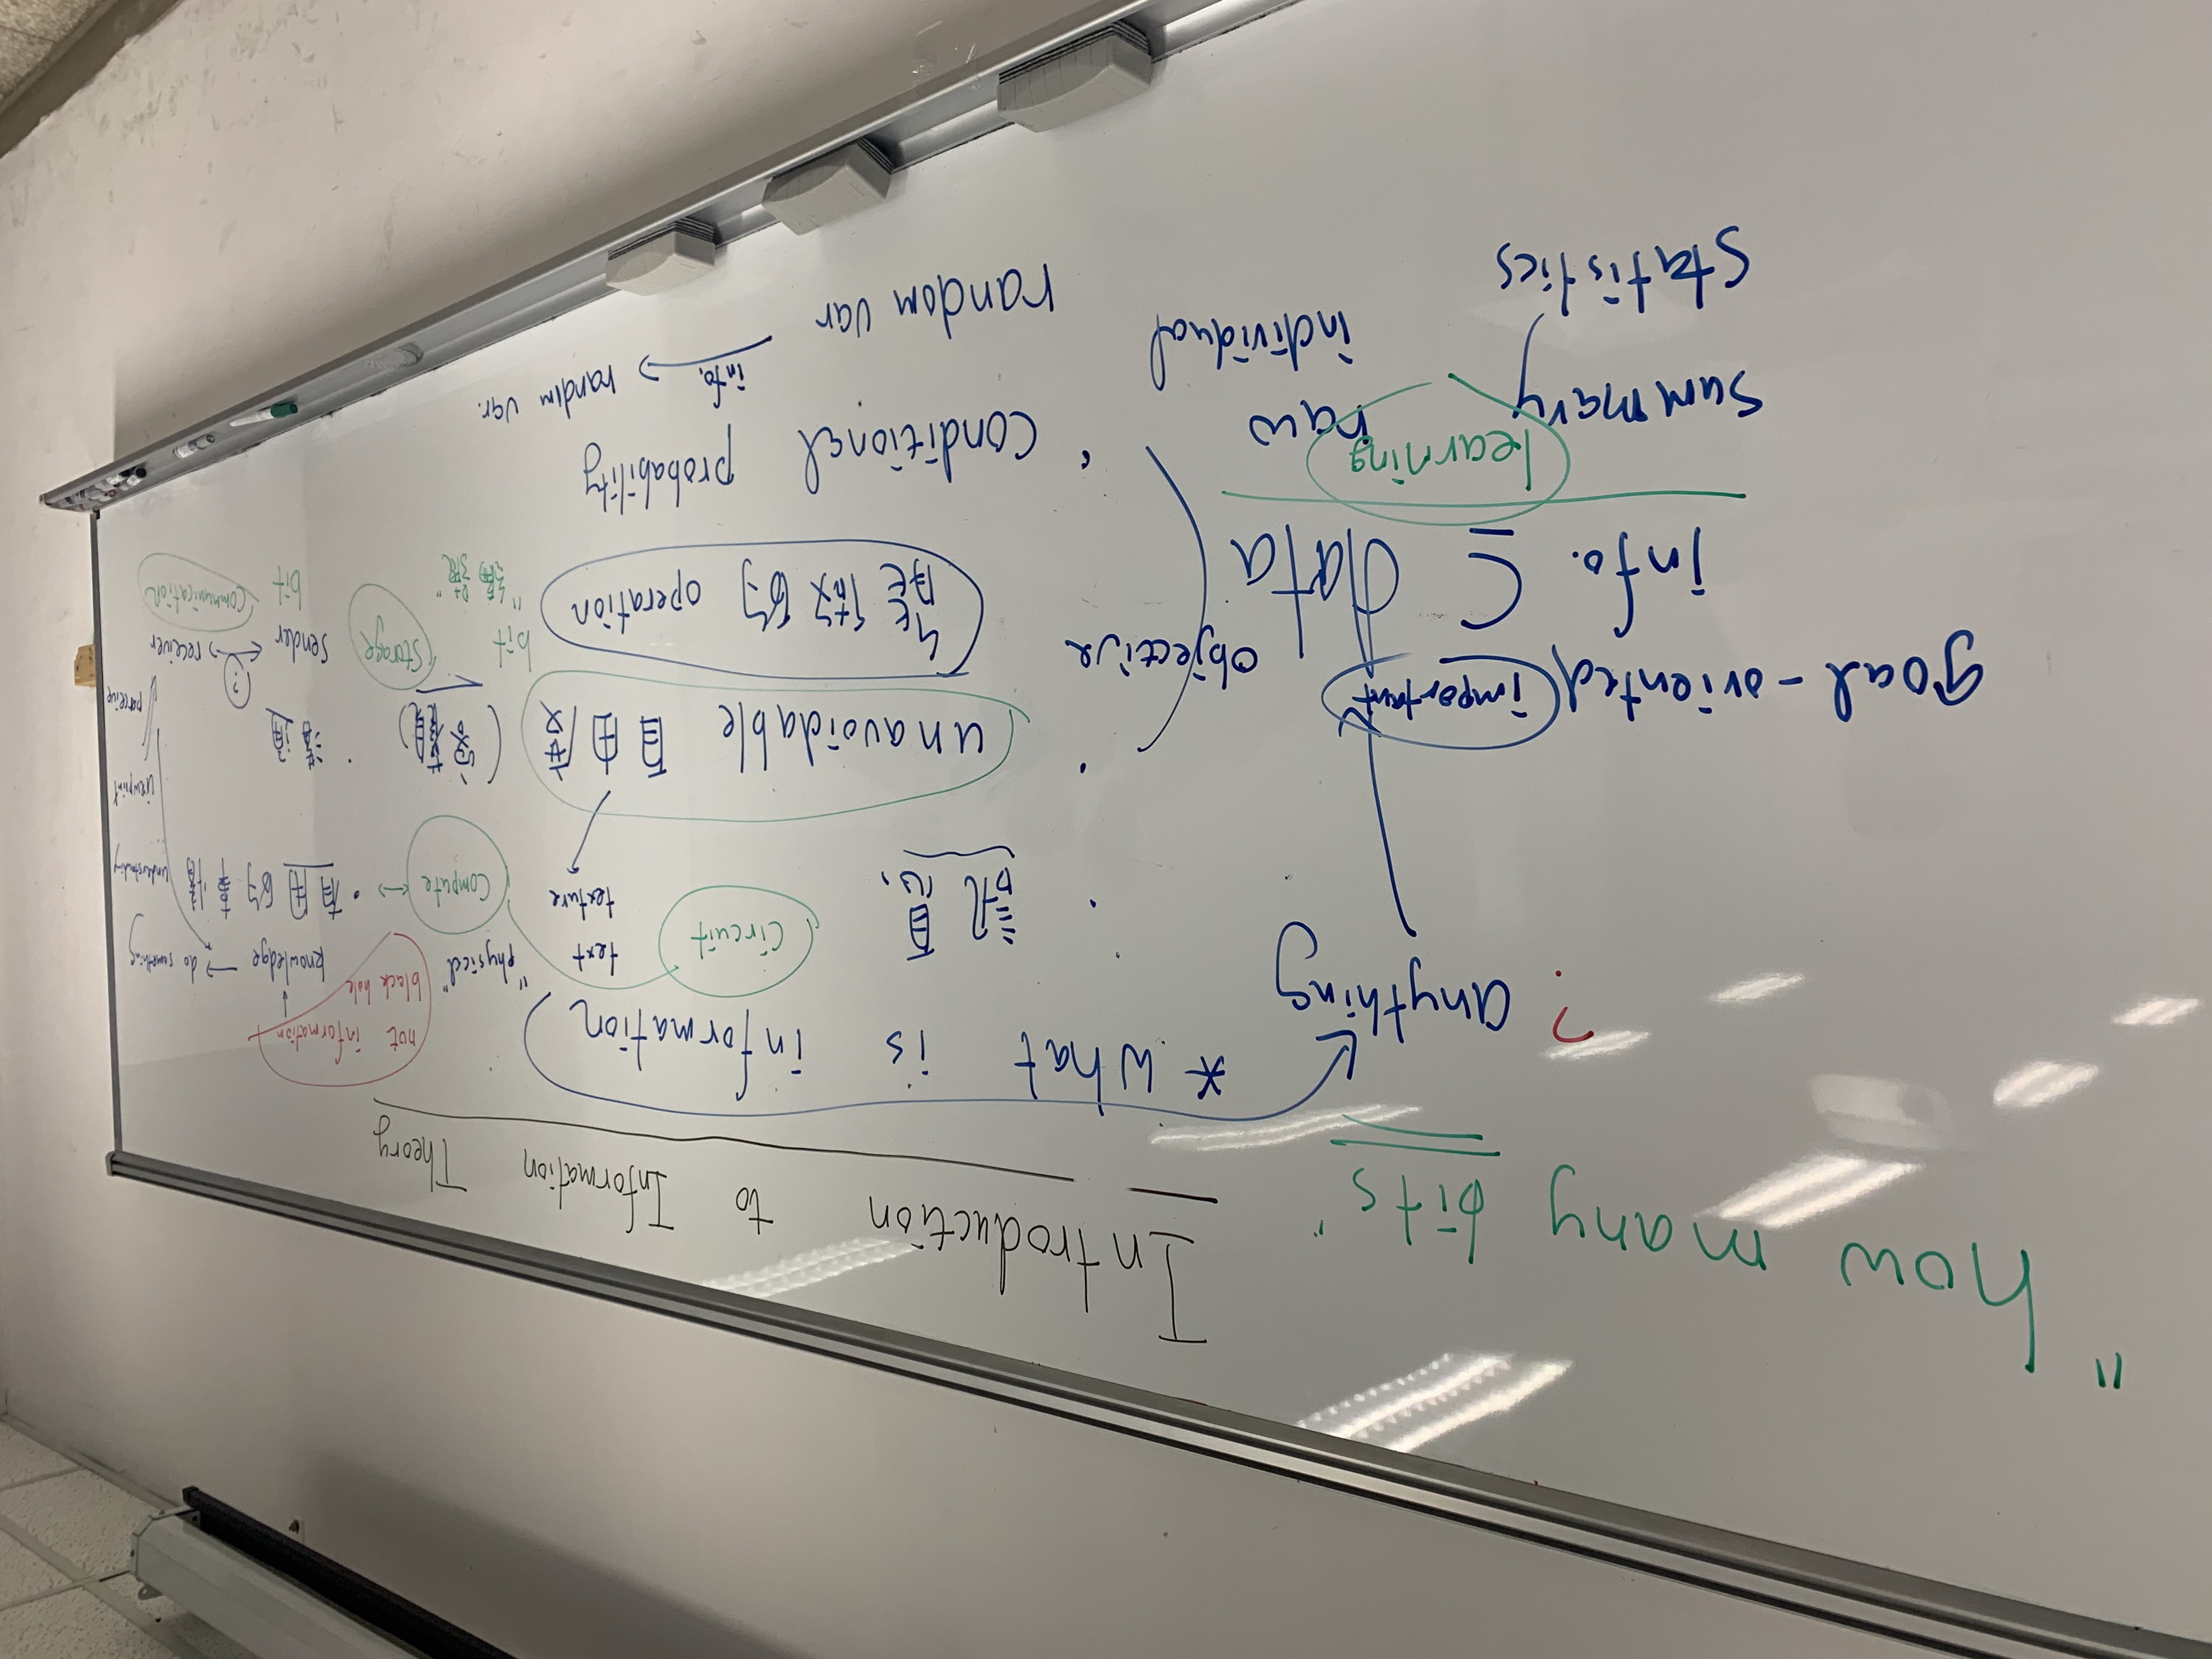 "how many bits"
Introduction to Information Theory
* What is information
? anything
"physical"
not information
black hole
knowledge → do something
訊息
Circuit
text
texture
Compute
有用的事情
understanding
viewpoint
perceive
goal-oriented
important
objective
unavoidable 自由/
Storage
bit
sender ↔ receiver
?
Communication
bit
info. ⊆ data
能做的 operation
learning
summary
raw
statistics
individual
conditional probability
random var
info. → random var.